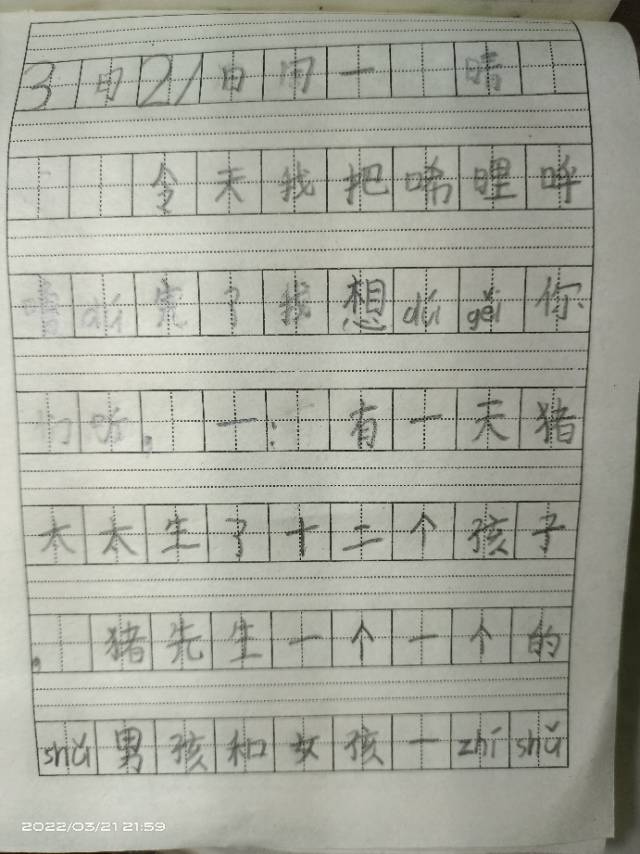 3月21日周一 晴
今天我把唏哩呼
噜dú完了我想dú gěi你
们听。一:有一天猪
太太生了十二个孩子
。猪先生一个一个的
shǔ男孩和女孩一zhí shǔ
2022/03/21 21:59